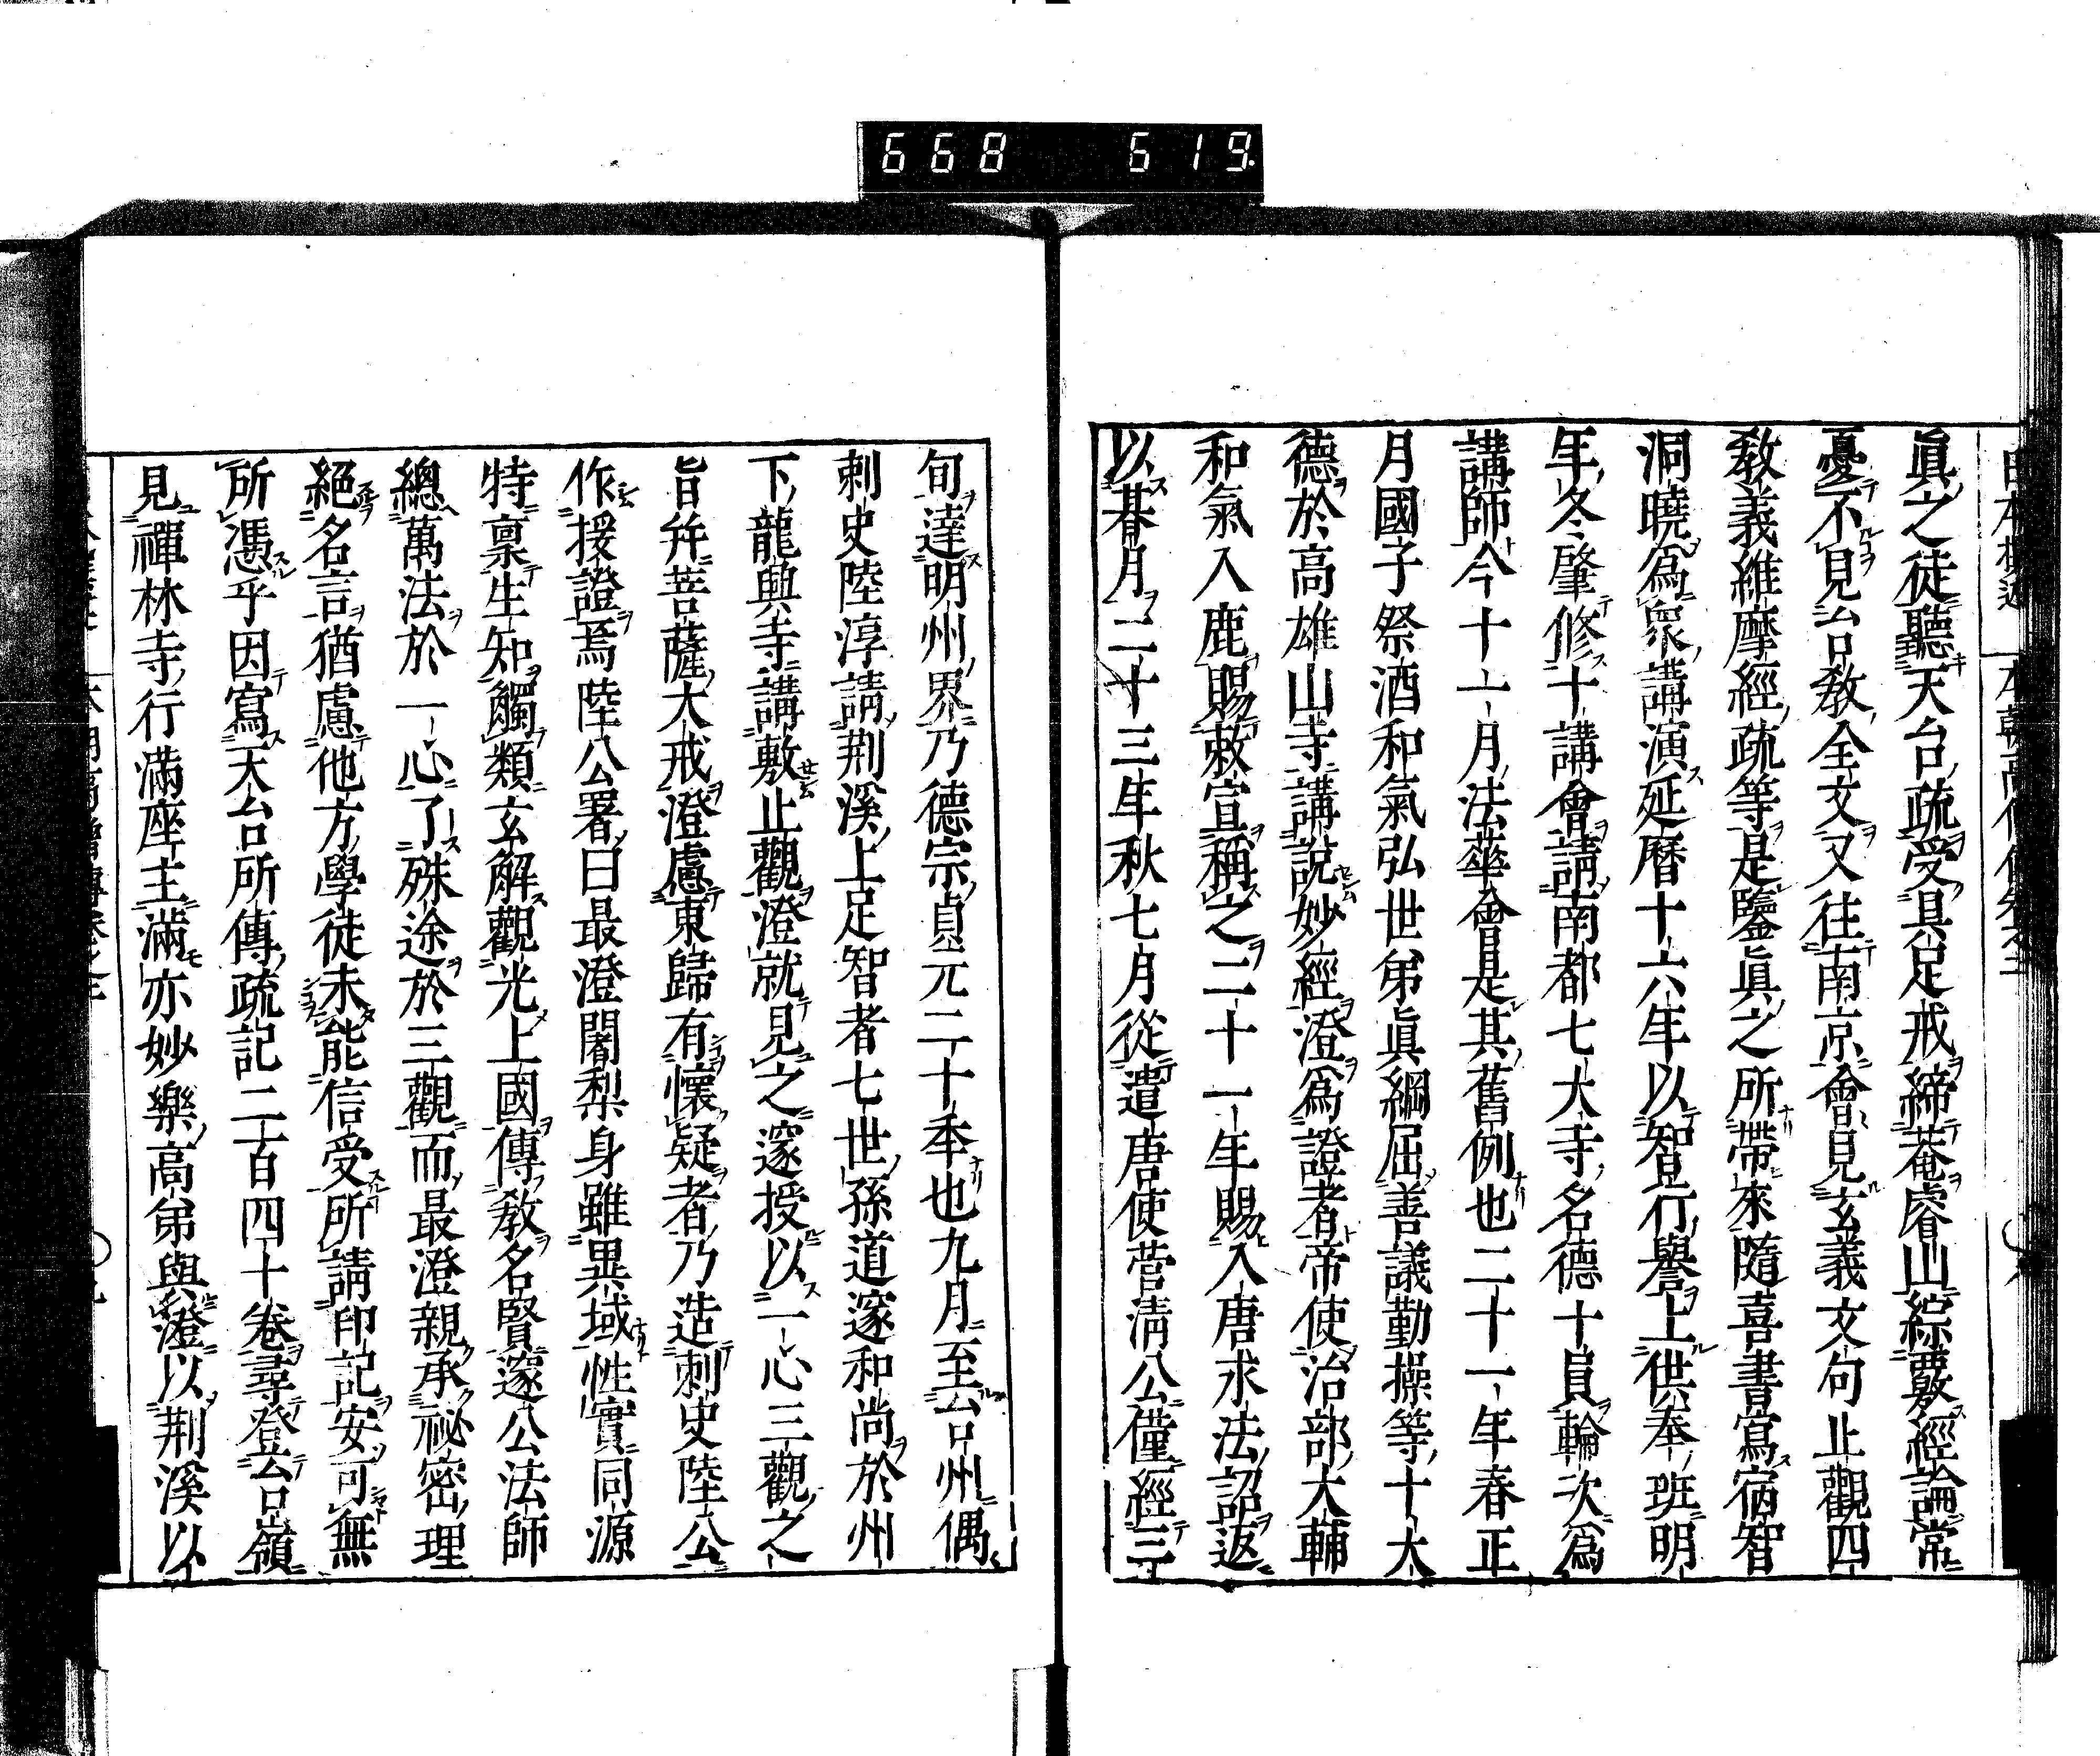 668 619
眞之徒聽天台疏受具足戒締菴睿山綜覈經論常
憂不見台教全文又往南京會見玄義文句止觀四
教義維摩經疏等是鑒眞之所帶來隨喜書寫宿智
洞曉爲衆講演延曆十六年以智行譽上供奉班明
年冬肇修十講會請南都七大寺名德十員輪次爲
講師今十一月法華會是其舊例也二十一年春正
月國子祭酒和氣弘世弟眞綱屈善議勤操等十大
德於高雄山寺講說妙經澄爲證者帝使治部大輔
和氣入鹿賜敕宣稱之二十一年賜入唐求法詔返
以朞月二十三年秋七月從遣唐使菅淸公僮經三
旬達明州界乃德宗貞元二十季也九月至台州偶
刺史陸淳請荆溪上足智者七世孫道邃和尚於州
下龍興寺講敷止觀澄就見之邃授以一心三觀之
旨幷菩薩大戒澄慮東歸有懷疑者乃造刺史陸公
作援證焉陸公署曰最澄闍梨身雖異域性實同源
特稟生知觸類玄解觀光上國傳教名賢邃公法師
總萬法於一心了殊途於三觀而最澄親承祕密理
絕名言猶慮他方學徒未能信受所請印記安可無
所憑乎因寫天台所傳疏記二百四十卷尋登台嶺
見禪林寺行滿座主滿亦妙樂高弟與澄以荆溪以